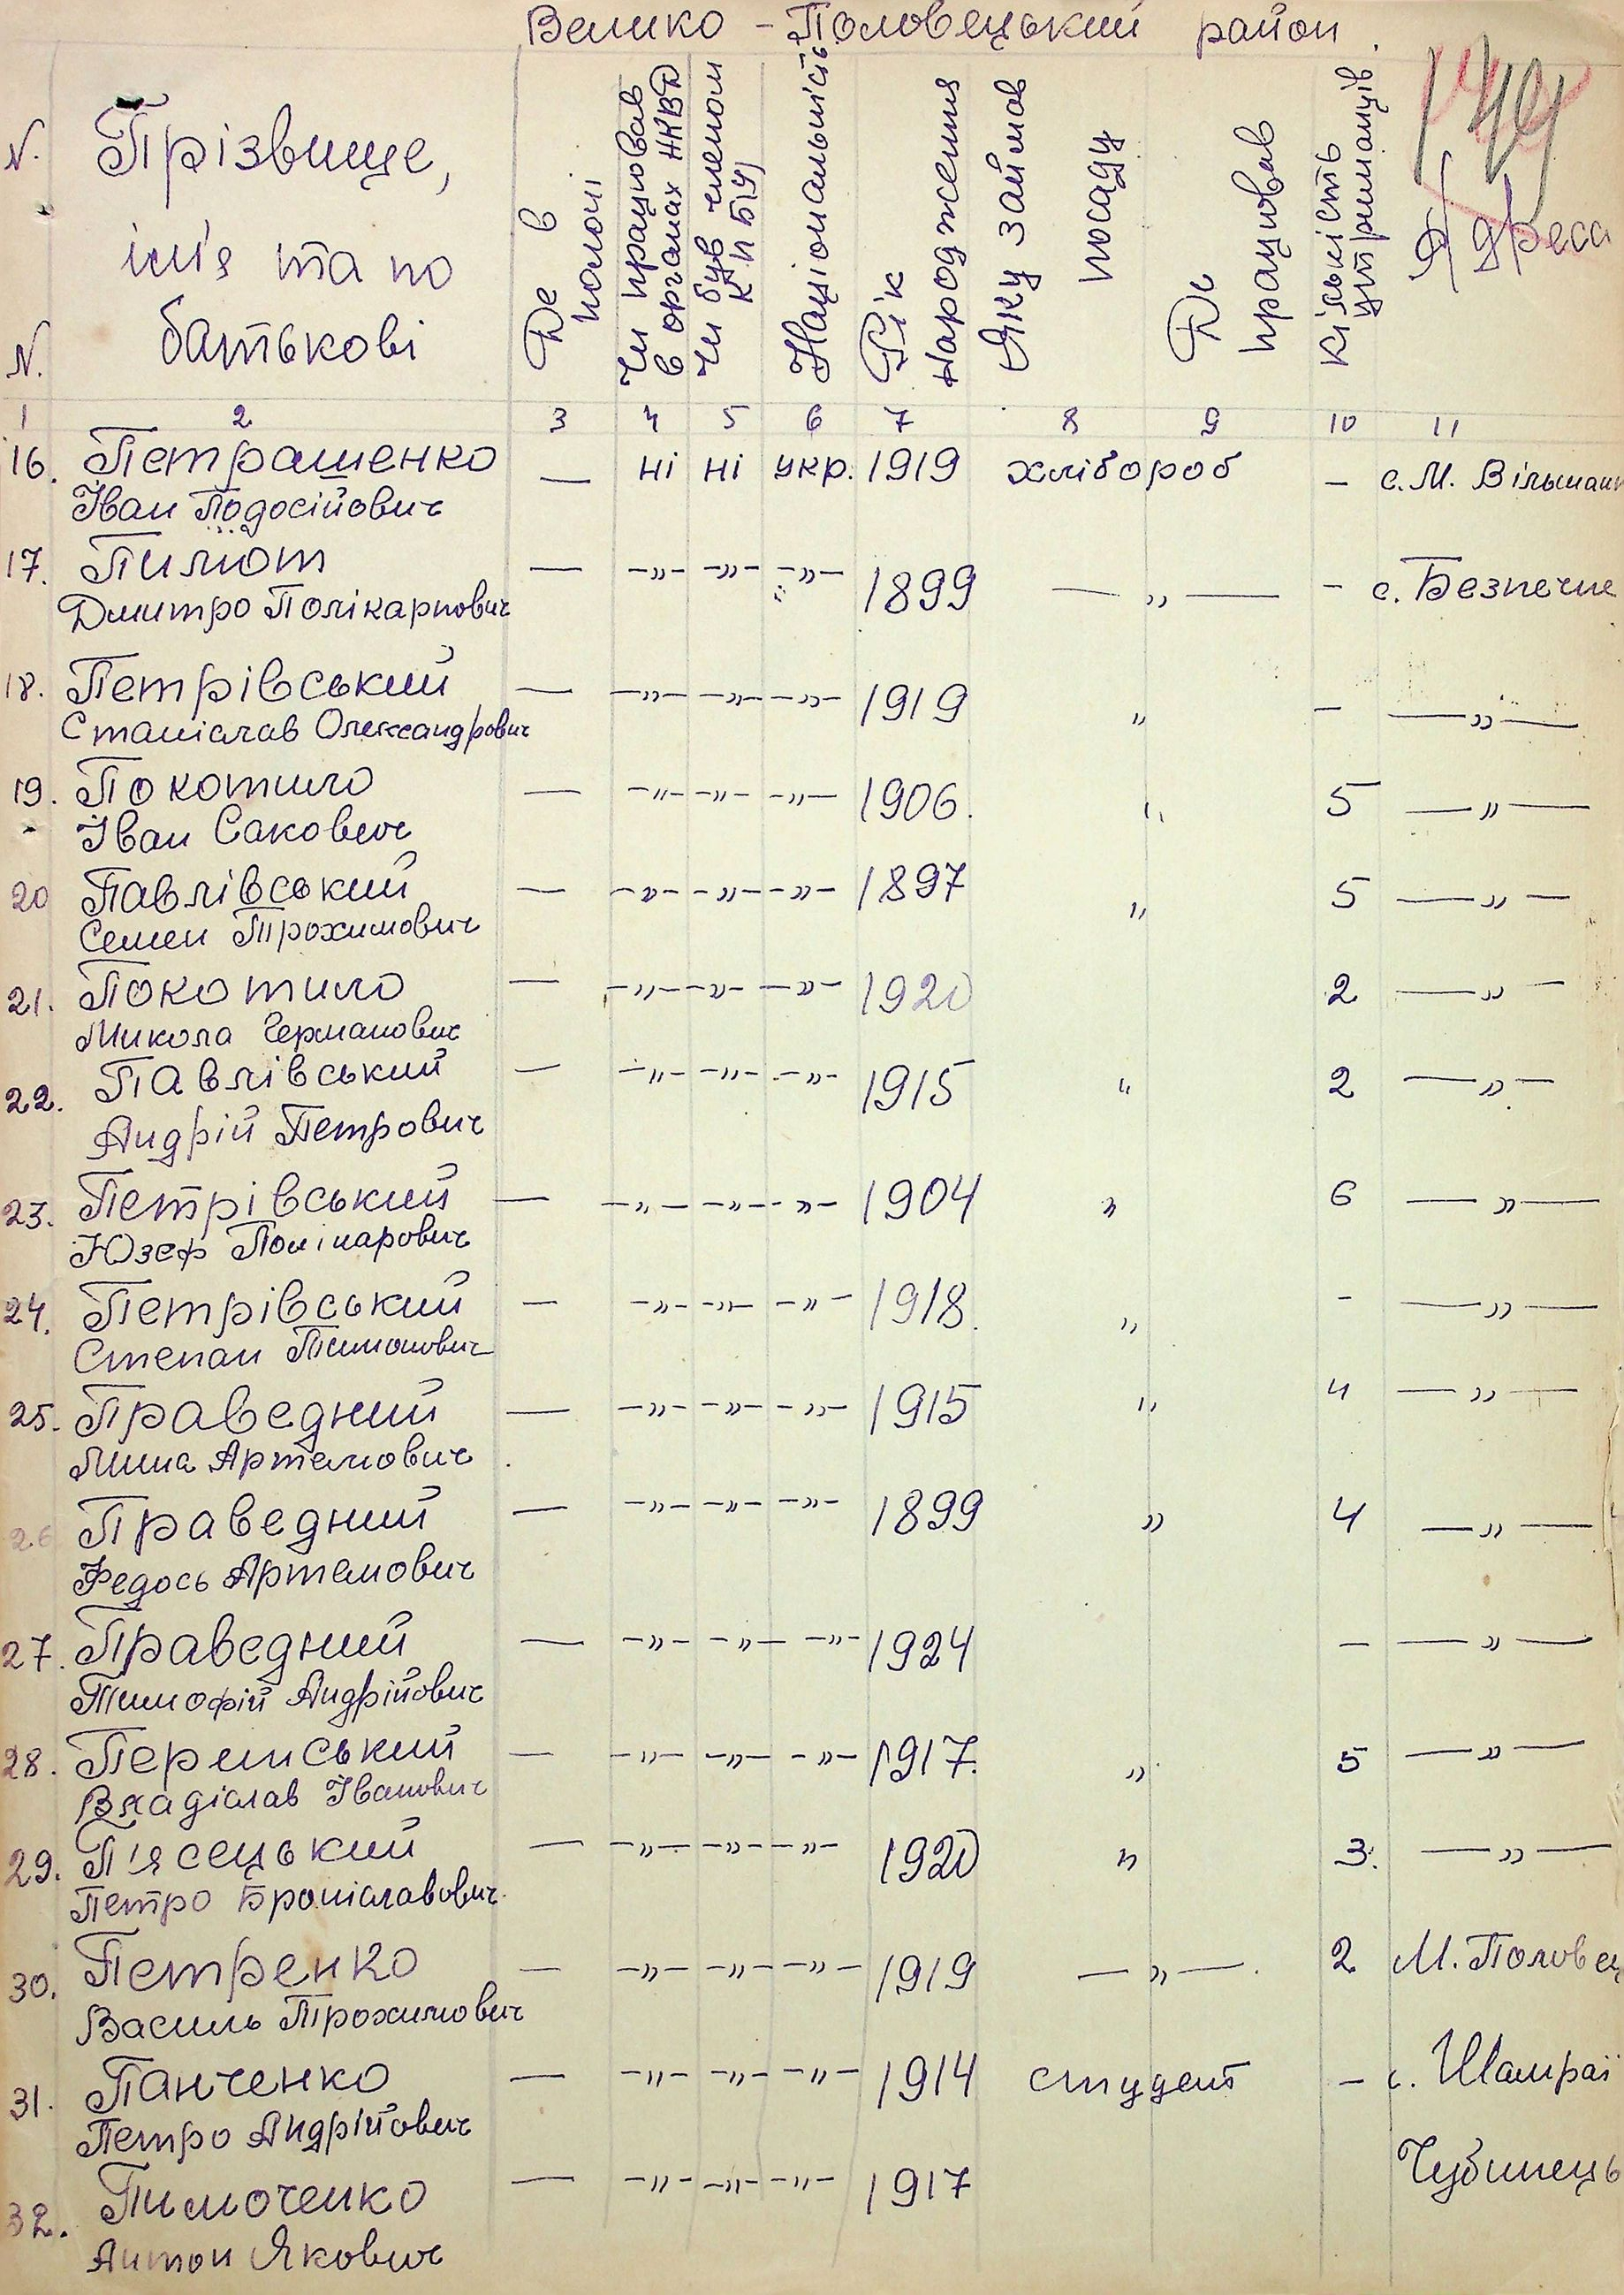 Велико - Половецький район.
N. N. Прізвище, ім'я та по батькові
Де в полоні
Чи працював в органах НКВД
Чи був членом КП(б)У
Національність
Рік народження
Яку займав посаду
Де працював
Кількість утриманців
Адреса
1 2 3 4 5 6 7 8 9 10 11
16. Петрашенко — ні ні укр. 1919 хлібороб - с. М. Вільшанк
Іван Подосійович
17. Пилют — -"- -"- -"- 1899 — " — - с. Безпечне
Дмитро Полікарпович
18. Петрівський — -"- -"- -"- 1919 " - — " —
Станіслав Олександрович
19. Покотило — -"- -"- -"- 1906. " 5 — " —
Іван Сакович
20 Павлівський — -"- -"- -"- 1897 " 5 — " —
Семен Трохимович
21. Покотило — -"- -"- -"- 1920 2 — " —
Микола Германович
22. Павлівський — -"- -"- -"- 1915 " 2 — " —
Андрій Петрович
23. Петрівський — -"- -"- -"- 1904 " 6 — " —
Юзеф
24. Петрівський — -"- -"- -"- 1918. " - — " —
Степан Тимонович
25. Праведний — -"- -"- -"- 1915 " 4 — " —
Артемович
26 Праведний — -"- -"- -"- 1899 " 4 — " —
Федось Артемович
27. Праведний — -"- -"- -"- 1924 — — " —
Тимофій Андрійович
28. — -"- -"- -"- 1917. " 5 — " —
Владіслав Іванович
29. П'ясецький — -"- -"- -"- 1920 " 3. — " —
Петро Броніславович.
30. Петренко — -"- -"- -"- 1919 — " —. 2 М. Половец
Василь Трохимович
31. Панченко — -"- -"- -"- 1914 студент - с. Шамраї
Петро Андрійович
32. Тимоченко — -"- -"- -"- 1917 Чубинець
Антон Якович